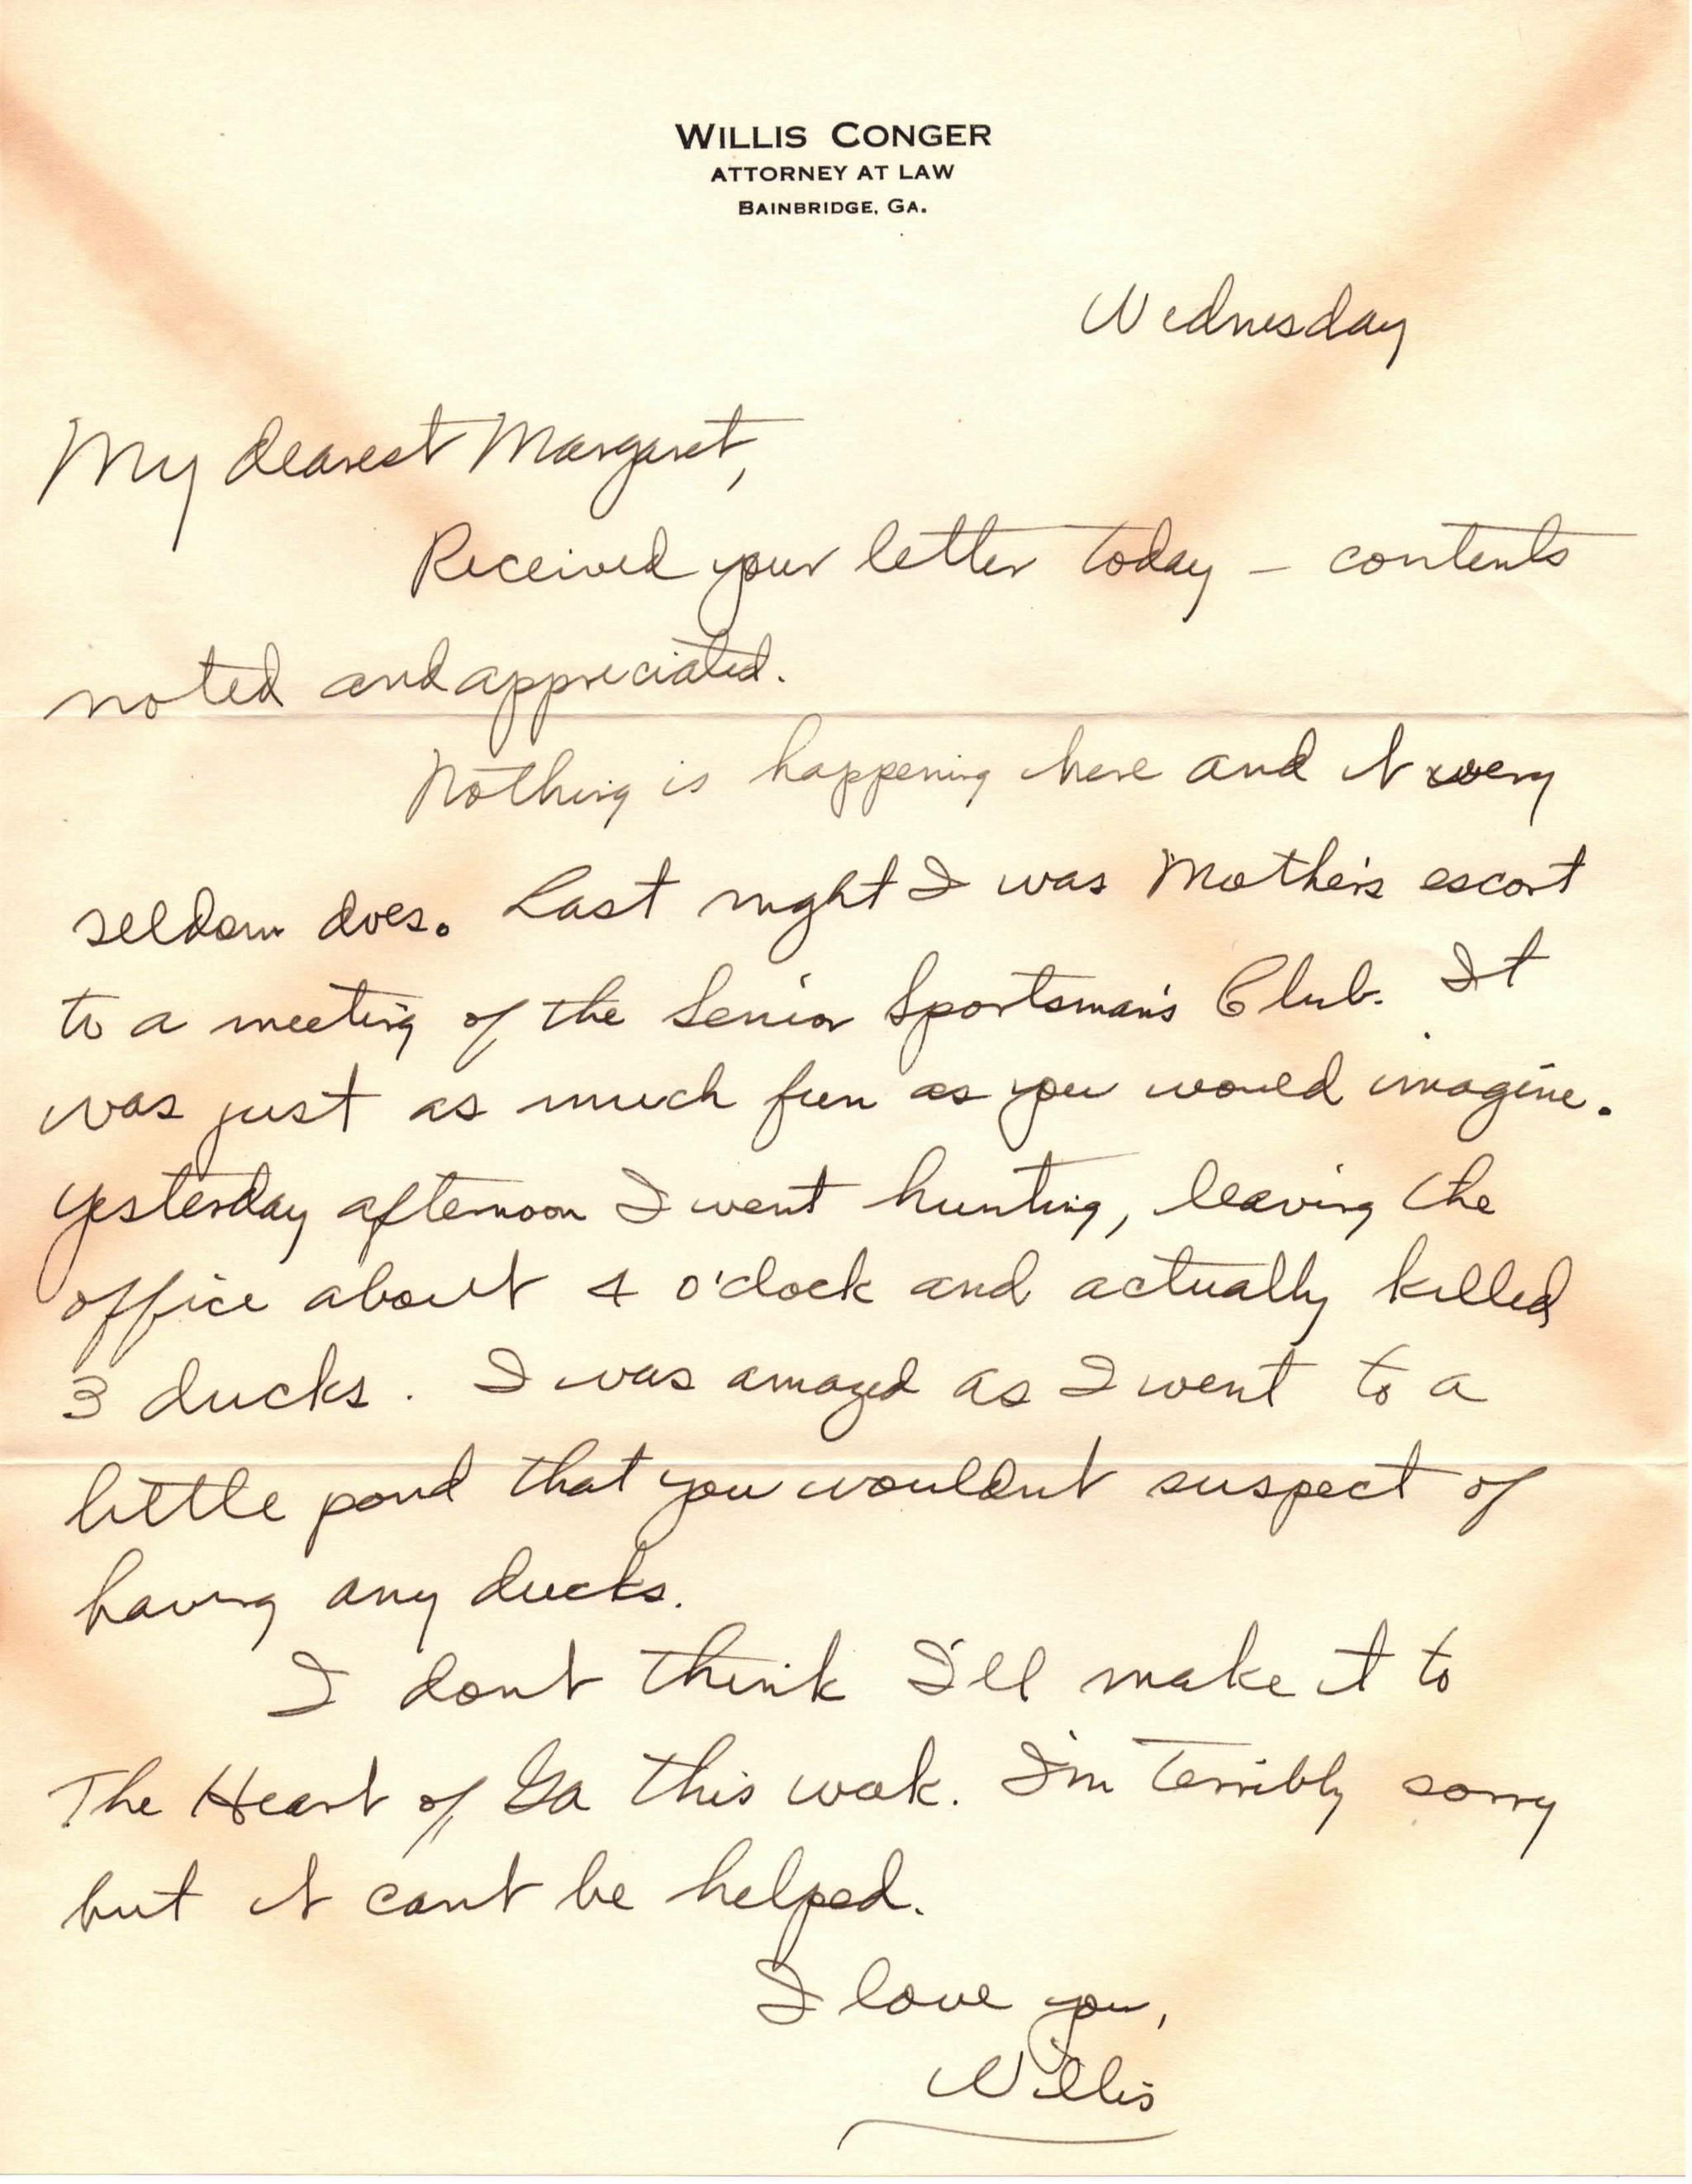 WILLIS CONGER
ATTORNEY AT LAW
BAINBRIDGE, GA.
Wednesday
My dearest Margaret,
Received your letter today – contents
noted and appreciated.
Nothing is happening here and it very
seldom does. Last night I was Mother's escort
to a meeting of the Senior Sportsman's Club. It
was just as much fun as you would imagine.
Yesterday afternoon I went hunting, leaving the
office about 4 o'clock and actually killed
3 ducks. I was amazed as I went to a
little pond that you wouldnt suspect of
having any ducks.
I dont think I'll make it to
The Heart of Ga this week. I'm terribly sorry
but it cant be helped.
I love you,
Willis